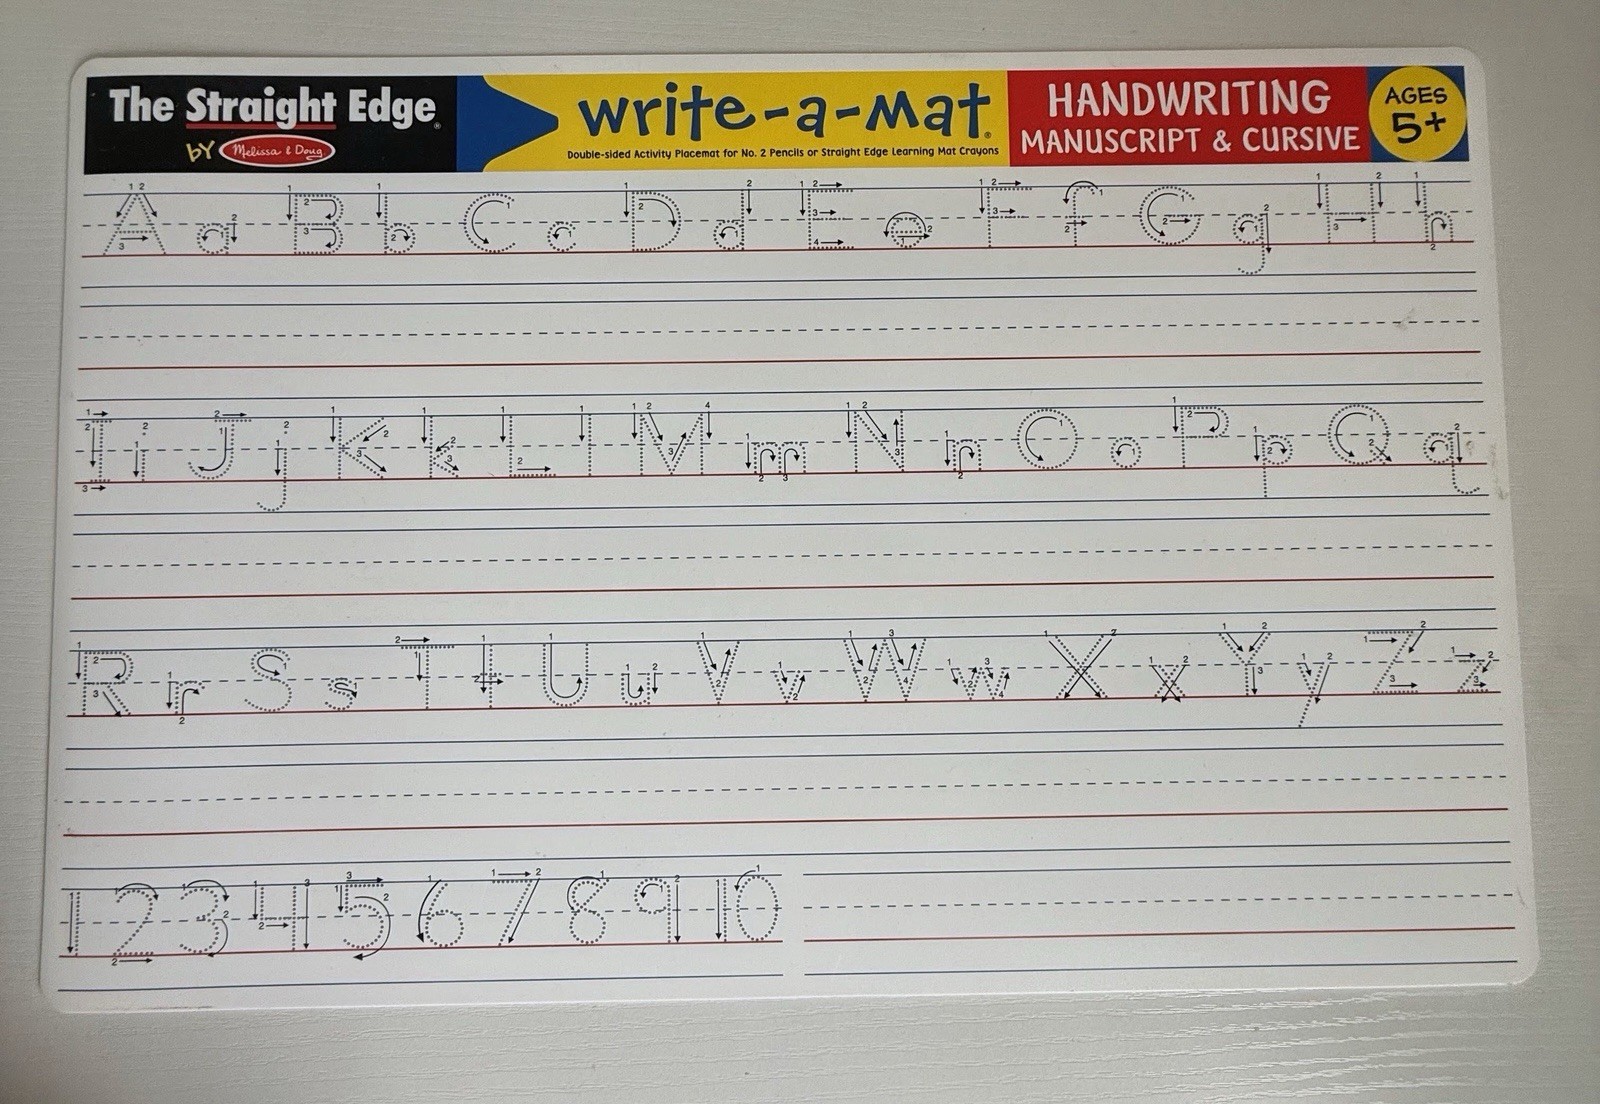 The Straight Edge®
by Melissa & Doug
write-a-mat®
Double-sided Activity Placemat for No. 2 Pencils or Straight Edge Learning Mat Crayons
HANDWRITING
MANUSCRIPT & CURSIVE
AGES
5+
A a B b C c D d E e F f G g H h
I i J j K k L l M m N n O o P p Q q
R r S s T t U u V v W w X x Y y Z z
1 2 3 4 5 6 7 8 9 10